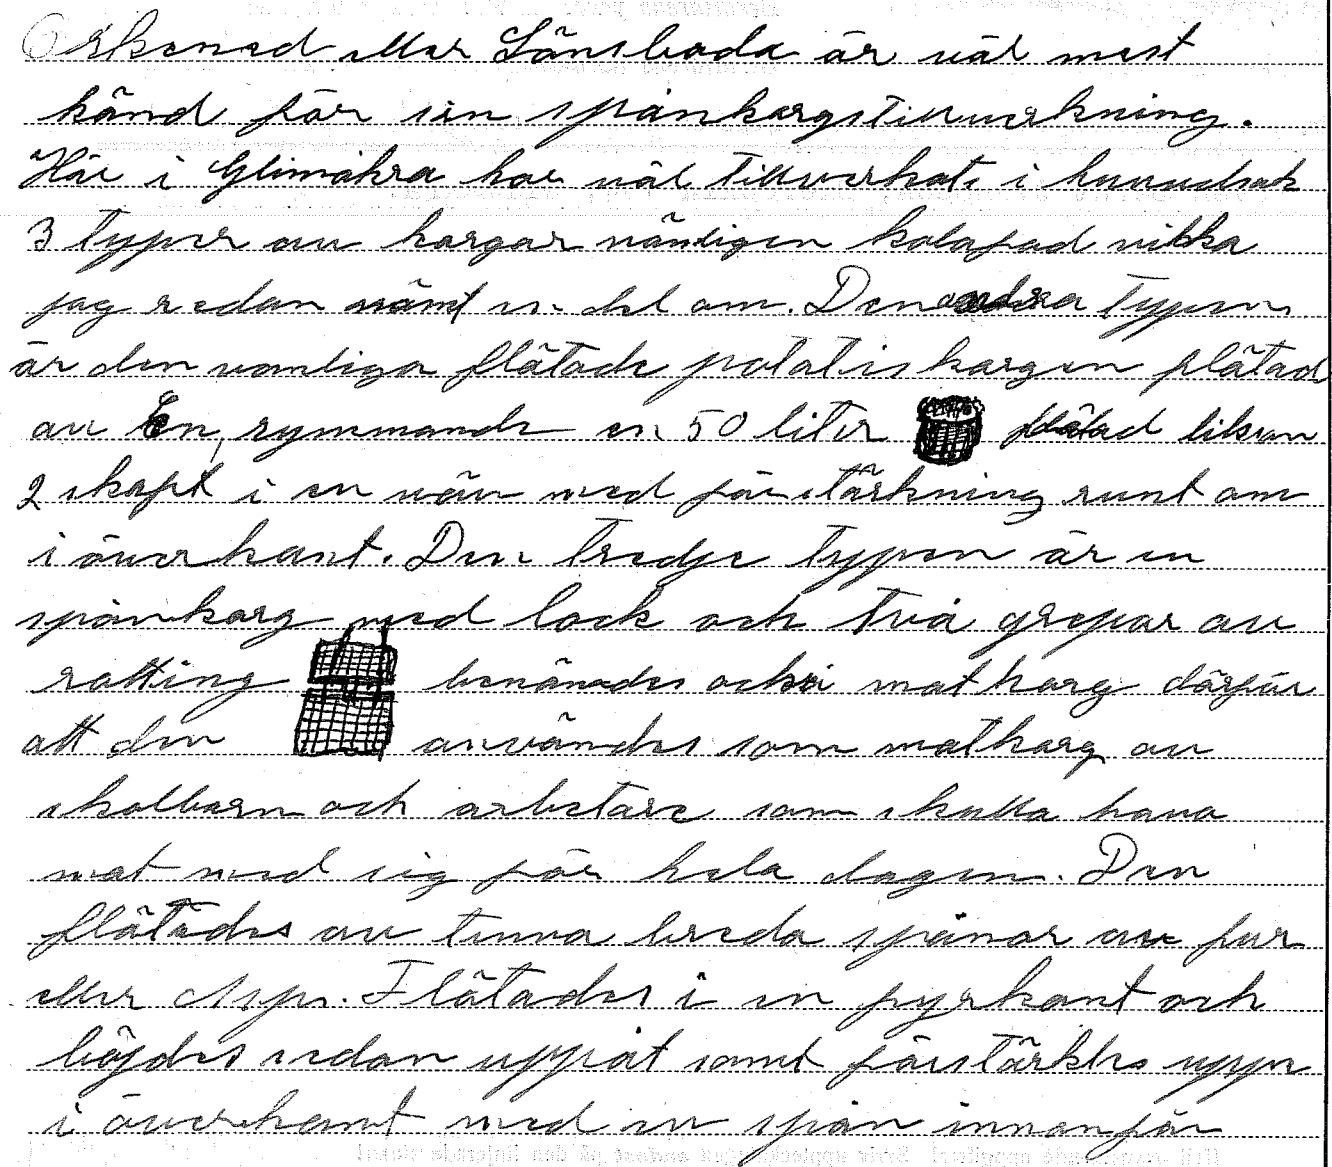 Örkened eller Lönsboda är väl mest
känd för sin spånkorgstillverkning.
Här i Glimåkra har väl tillverkats i huvudsak
3 typer av korgar nämligen kolafad vilka
jag redan nämt en del om. Den andra typen
är den vanliga flätade potatiskorgen flätad
av En, rymmande en 50 liter flätad liksom
2 skaft i en väv med förstärkning runt om
i överkant. Den tredje typen är en
spånkorg med lock och två grepar av
rotting benämdes också matkorg därför
att den användes som matkorg av
skolbarn och arbetare som skulle hava
mat med sig för hela dagen. Den
flätades av tunna breda spånor av fur
eller Asp. Flätades i en fyrkant och
böjdes sedan uppåt samt förstärktes uppe
i överkant med en spån innanför